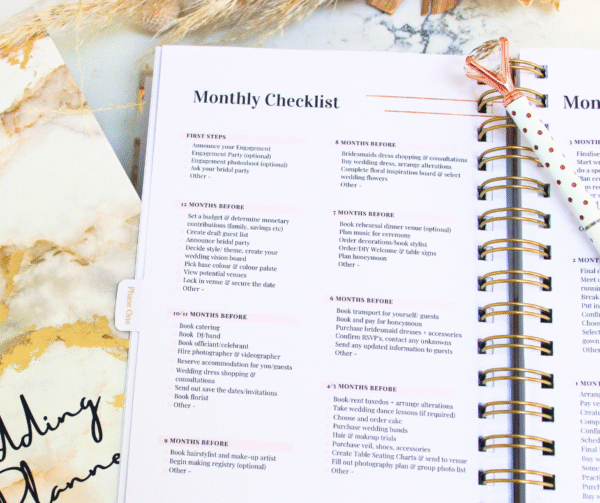 Monthly Checklist
FIRST STEPS
Announce your Engagement
Engagement Party (optional)
Engagement photoshoot (optional)
Ask your bridal party
Other -
12 MONTHS BEFORE
Set a budget & determine monetary
contributions (family, savings etc)
Create draft guest list
Announce bridal party
Decide style/ theme, create your
wedding vision board
Pick base colour & colour palate
View potential venues
Lock in venue & secure the date
Other -
10/11 MONTHS BEFORE
Book catering
Book DJ/band
Book officiant/celebrant
Hire photographer & videographer
Reserve accommodation for you/guests
Wedding dress shopping &
consultations
Send out save the dates/invitations
Book florist
Other -
9 MONTHS BEFORE
Book hairstylist and make-up artist
Begin making registry (optional)
Other -
8 MONTHS BEFORE
Bridesmaids dress shopping & consultations
Buy wedding dress, arrange alterations
Complete floral inspiration board & select
wedding flowers
Other -
7 MONTHS BEFORE
Book rehearsal dinner venue (optional)
Plan music for ceremony
Order decorations/book stylist
Order/DIY Welcome & table signs
Plan honeymoon
Other -
6 MONTHS BEFORE
Book transport for yourself/ guests
Book and pay for honeymoon
Purchase bridesmaid dresses + accessories
Confirm RSVP's, contact any unknowns
Send any updated information to guests
Other -
4/5 MONTHS BEFORE
Book/rent tuxedos + arrange alterations
Take wedding dance lessons (if required)
Choose and order cake
Purchase wedding bands
Hair & makeup trials
Purchase veil, shoes, accessories
Create Table Seating Charts & send to venue
Fill out photography plan & group photo list
Other -
Phase One
dding
Planne
Mon
3 MONTHS
Finalise
Start
do a sp
Plan
2 MON
Final
Meet
running
Break
Put in
Confi
Choos
Select
gown
Other
1 MON
Arran
Pay
Creat
Comp
Confi
Sched
Final
Buy
Some
Practi
Purch
Buy